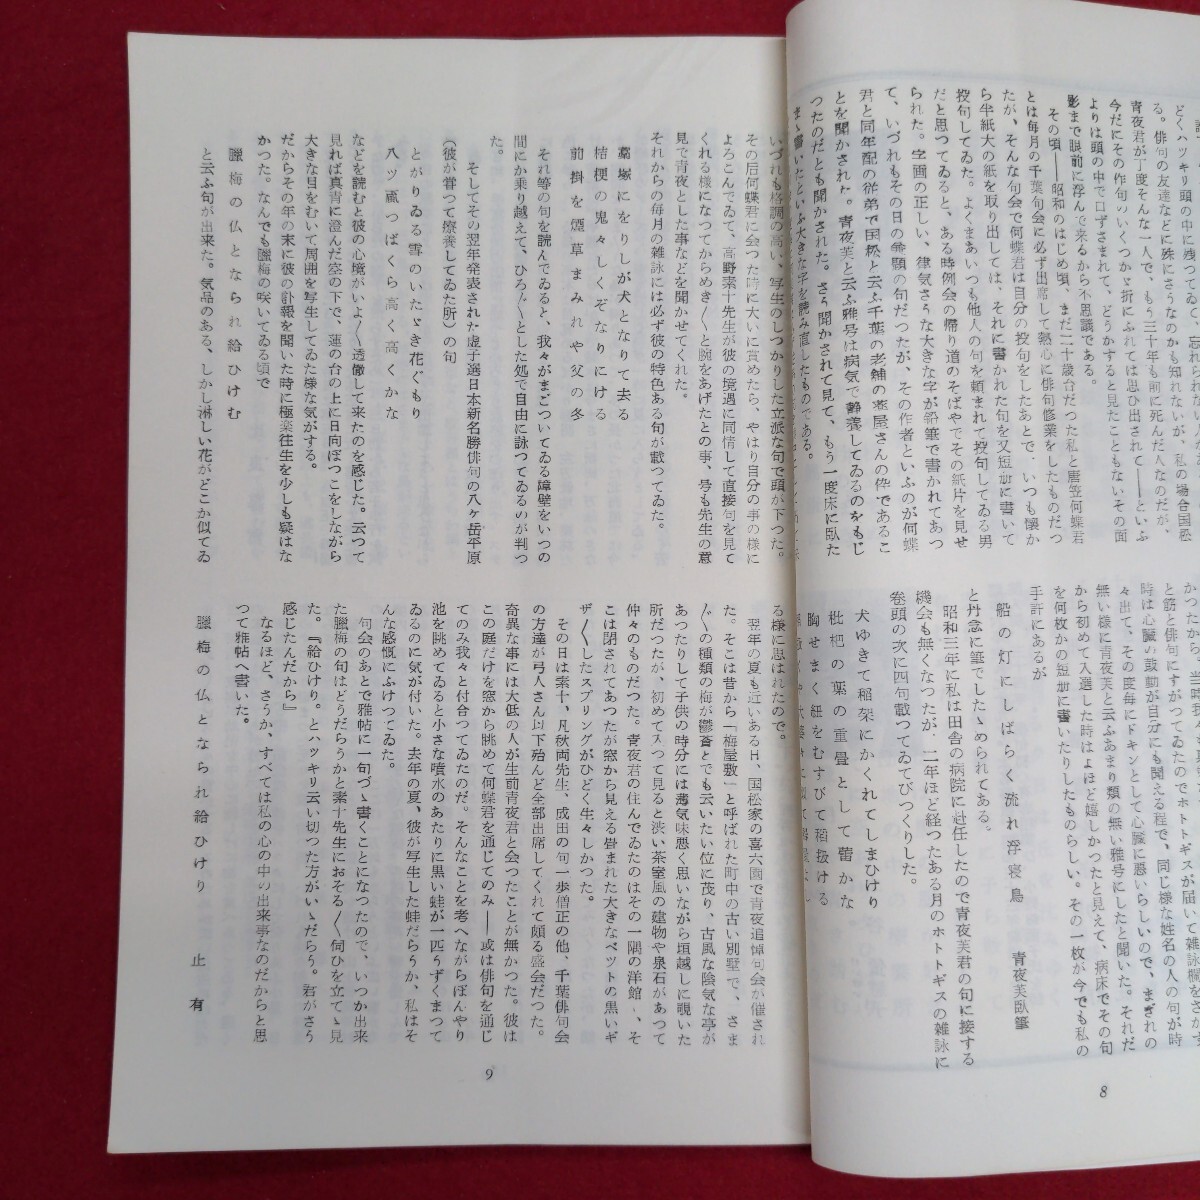 どくハッキリ頭の中に残ってゐて、忘れられな
る。俳句の友達などに殊にさうなのかも知れないが、私の場合国松
青夜君が丁度そんな一人で、もう三十年も前に死んだ人なのだが、
今だにその作句のいくつかゞ折にふれては思ひ出されて――といふ
よりは頭の中で口ずさまれて、どうかすると見たこともないその面
影まで眼前に浮んで来るから不思議である。
その頃――昭和のはじめ頃、まだ二十歳台だった私と唐笠何蝶君
とは毎月の千葉句会に必ず出席して熱心に俳句修業をしたものだつ
たが、そんな句会で何蝶君は自分の投句をしたあとで、いつも懐か
ら半紙大の紙を取り出しては、それに書かれた句を又短冊に書いて
投句してゐた。よくまあいつも他人の句を頼まれて投句してゐる男
だと思つてゐると、ある時例会の帰り道のそばやでその紙片を見せ
られた。字画の正しい、律気さうな大きな字が鉛筆で書かれてあつ
て、いづれもその日の兼題の句だつたが、その作者といふのが何蝶
君と同年配の従弟で国松と云ふ千葉の老舗の薬屋さんの伜であるこ
とを聞かされた。青夜芙と云ふ雅号は病気で静養してゐるのをもじ
つたのだとも聞かされた。さう聞かされて見て、もう一度床に臥た
まゝ書いたといふ大きな字を読み直したものである。
と筋と俳句にすがつてゐた
時は心臓の鼓動が自分にも聞える程で、同じ様な姓名の人の句が時
々出て、その度毎にドキンとして心臓に悪いらしいので、まぎれの
無い様に青夜芙と云ふあまり類の無い雅号にしたと聞いた。それだ
から初めて入選した時はよほど嬉しかつたと見えて、病床でその句
を何枚かの短冊に書いたりしたものらしい。その一枚が今でも私の
手許にあるが
船の灯にしばらく流れ浮寝鳥　青夜芙臥筆
と丹念に筆でしたゝめられてある。
昭和三年に私は田舎の病院に赴任したので青夜芙君の句に接する
機会も無くなつたが、二年ほど経つたある月のホトトギスの雑詠に
巻頭の次に四句載つてゐてびつくりした。
犬ゆきて稲架にかくれてしまひけり
枇杷の葉の重畳として蕾かな
胸せまく紐をむすびて稲扱ける
8
いづれも格調の高い、写生のしつかりした立派な句で頭が下つた。
その后何蝶君に会つた時に大いに賞めたら、やはり自分の事の様に
よろこんでゐて、高野素十先生が彼の境遇に同情して直接句を見て
くれる様になつてからめき〱と腕をあげたとの事、号も先生の意
見で青夜とした事などを聞かせてくれた。
それからの毎月の雑詠には必ず彼の特色ある句が載つてゐた。
藁塚にをりしが犬となりて去る
桔梗の鬼々しくぞなりにける
前掛を煙草まみれや父の冬
それ等の句を読んでゐると、我々がまごついてゐる障壁をいつの
間にか乗り越えて、ひろ〲とした処で自由に詠つてゐるのが判つ
そしてその翌年発表された虚子選日本新名勝俳句の八ヶ岳平原
（彼が嘗つて療養してゐた所）の句
とがりゐる雪のいたゞき花ぐもり
八ツ颪つばくら高く高くかな
などを読むと彼の心境がいよ〱透徹して来たのを感じた。云つて
見れば真青に澄んだ空の下で、蓮の台の上に日向ぼつこをしながら
大きな目をむいて周囲を写生してゐた様な気がする。
だからその年の末に彼の訃報を聞いた時に極楽往生を少しも疑はな
かつた。なんでも臘梅の咲いてゐる頃で
臘梅の仏となられ給ひけむ
と云ふ句が出来た。気品のある、しかし淋しい花がどこか似てゐ
る様に思はれたので。
翌年の夏も近いある日、国松家の喜六園で青夜追悼句会が催され
た。そこは昔から「梅屋敷」と呼ばれた町中の古い別墅で、さま
〲の種類の梅が鬱蒼とでも云いたい位に茂り、古風な陰気な亭が
あつたりして子供の時分には薄気味悪く思いながら垣越しに覗いた
所だつたが、初めて入って見ると渋い茶室風の建物や泉石があつて
仲々のものだつた。青夜君の住んでゐたのはその一隅の洋館で、そ
こは閉されてあつたが窓から見える畳まれた大きなベットの黒いギ
ザ〱したスプリングがひどく生々しかつた。
その日は素十、凡秋両先生、成田の句一歩僧正の他、千葉俳句会
の方達が弓人さん以下殆んど全部出席してくれて頗る盛会だつた。
奇異な事には大低の人が生前青夜君と会つたことが無かつた。彼は
この庭だけを窓から眺めて何蝶君を通じてのみ――或は俳句を通じ
てのみ我々と付合つてゐたのだ。そんなことを考へながらぼんやり
池を眺めてゐると小さな噴水のあたりに黒い蛙が一匹うずくまつて
ゐるのに気が付いた。去年の夏、彼が写生した蛙だらうか、私はそ
んな感慨にふけつてゐた。
句会のあとで雅帖に一句づゝ書くことになつたので、いつか出来
た臘梅の句はどうだらうかと素十先生におそる〱伺ひを立てゝ見
た。『給ひけり。とハッキリ云い切つた方がいゝだらう。君がさう
感じたんだから』
なるほど、さうか、すべては私の心の中の出来事なのだからと思
つて雅帖へ書いた。
臘梅の仏となられ給ひけり　止有
9